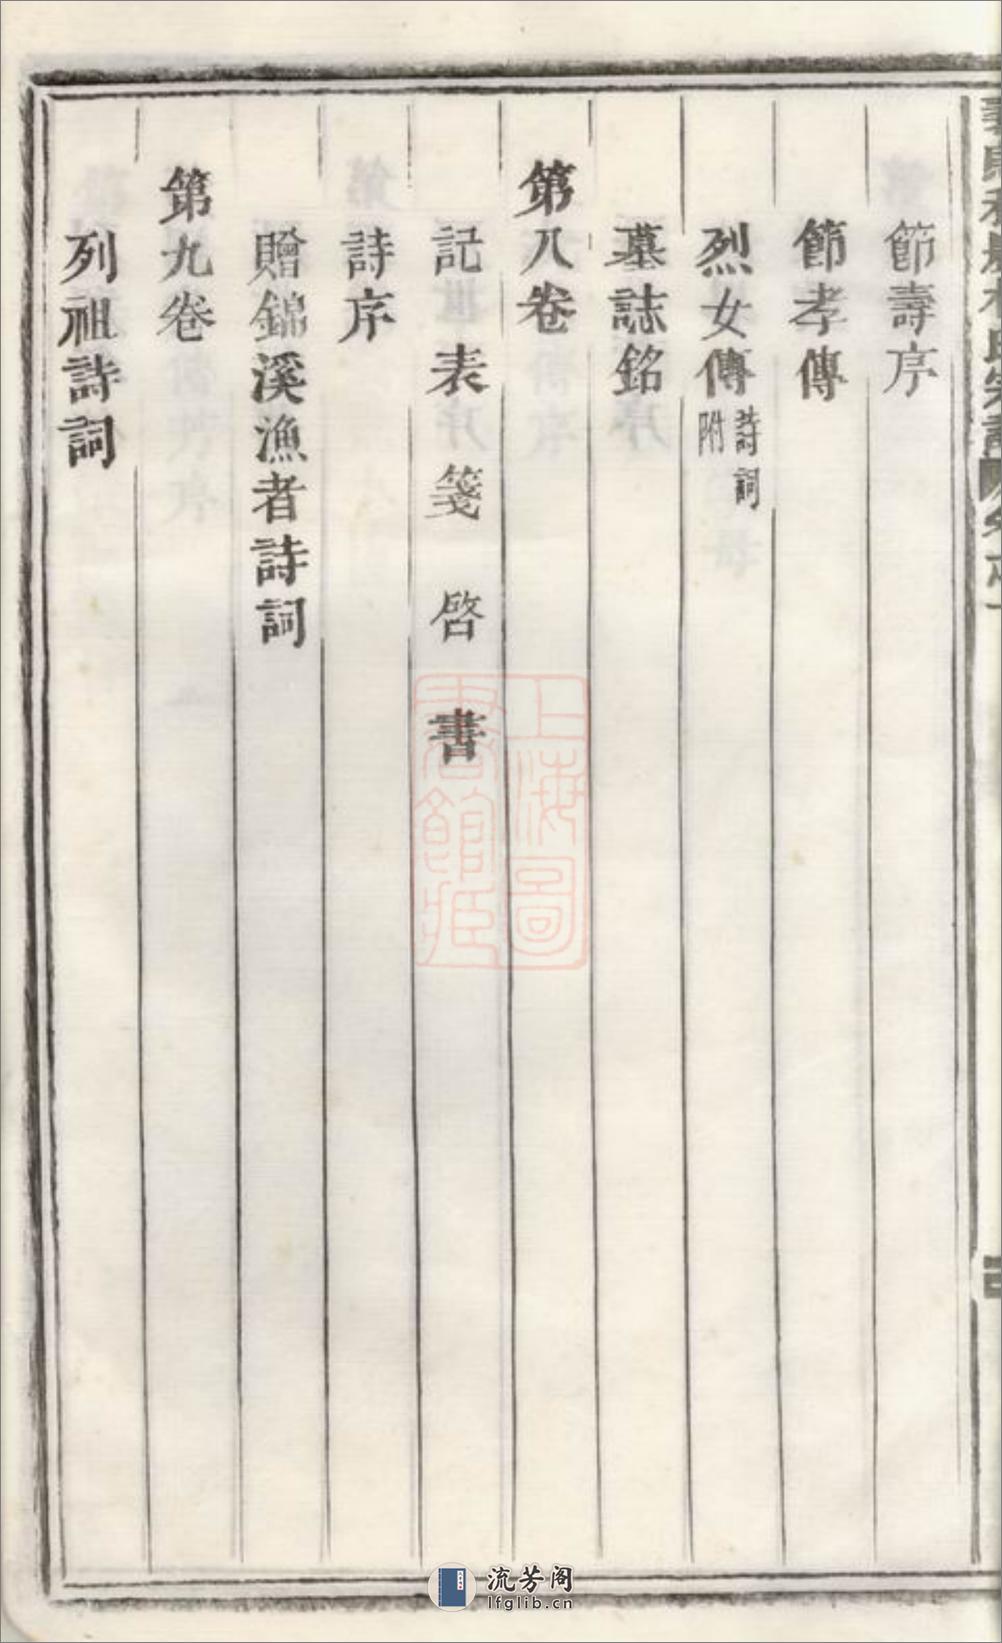 節壽序
節孝傳
烈女傳詩詞附
墓誌銘
第八卷
記表箋啓書
詩序
贈錦溪漁者詩詞
第九卷
列祖詩詞
上海圖書館藏
流芳阁
lfglib.cn